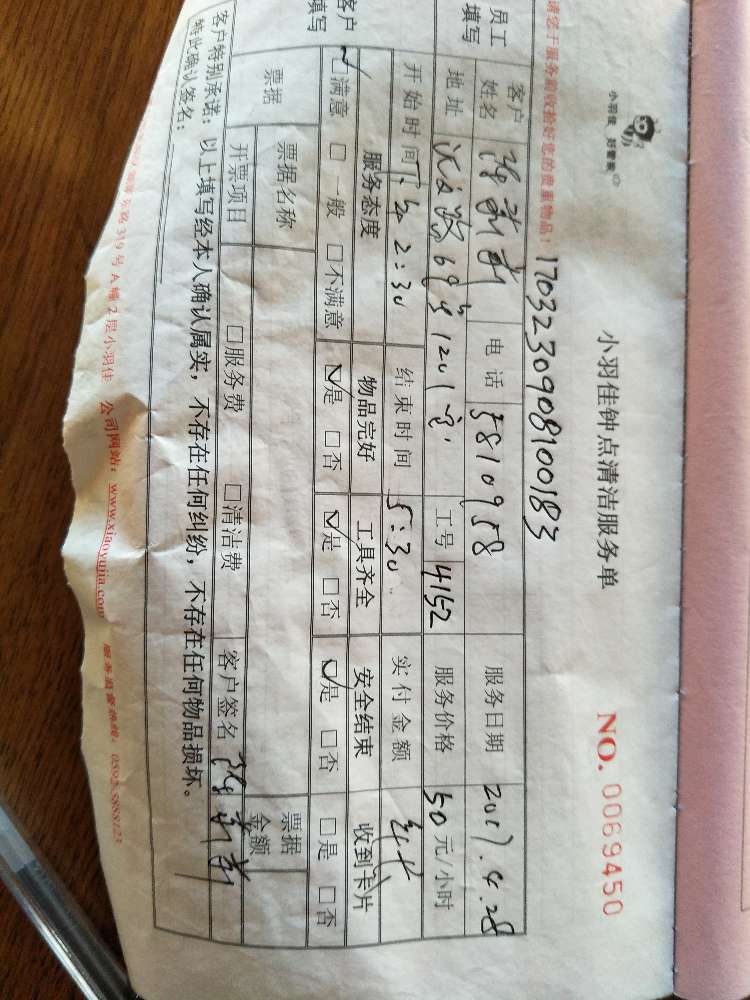 小羽佳 好管家
小羽佳钟点清洁服务单
NO. 0069450
请您于服务前收捡好您的贵重物品！ 1703230908100183
员工填写 客户姓名 电话 5810958 服务日期 2017.4.28
地址 69号1201室 工号 4152 服务价格 50元/小时
开始时间 下午2:30 结束时间 5:30 实付金额
客户填写 服务态度 物品完好 工具齐全 安全结束 收到卡片
☑满意 □一般 □不满意 ☑是 □否 ☑是 □否 ☑是 □否 □是 □否
票据 票据名称 票据金额
开票项目 □服务费 □清洁费 客户签名
客户特别承诺：以上填写经本人确认属实，不存在任何纠纷，不存在任何物品损坏。
特此确认签名：
319号A幢2层小羽佳 公司网站：www.xiaoyujia.com 服务质量热线：0592-5888123